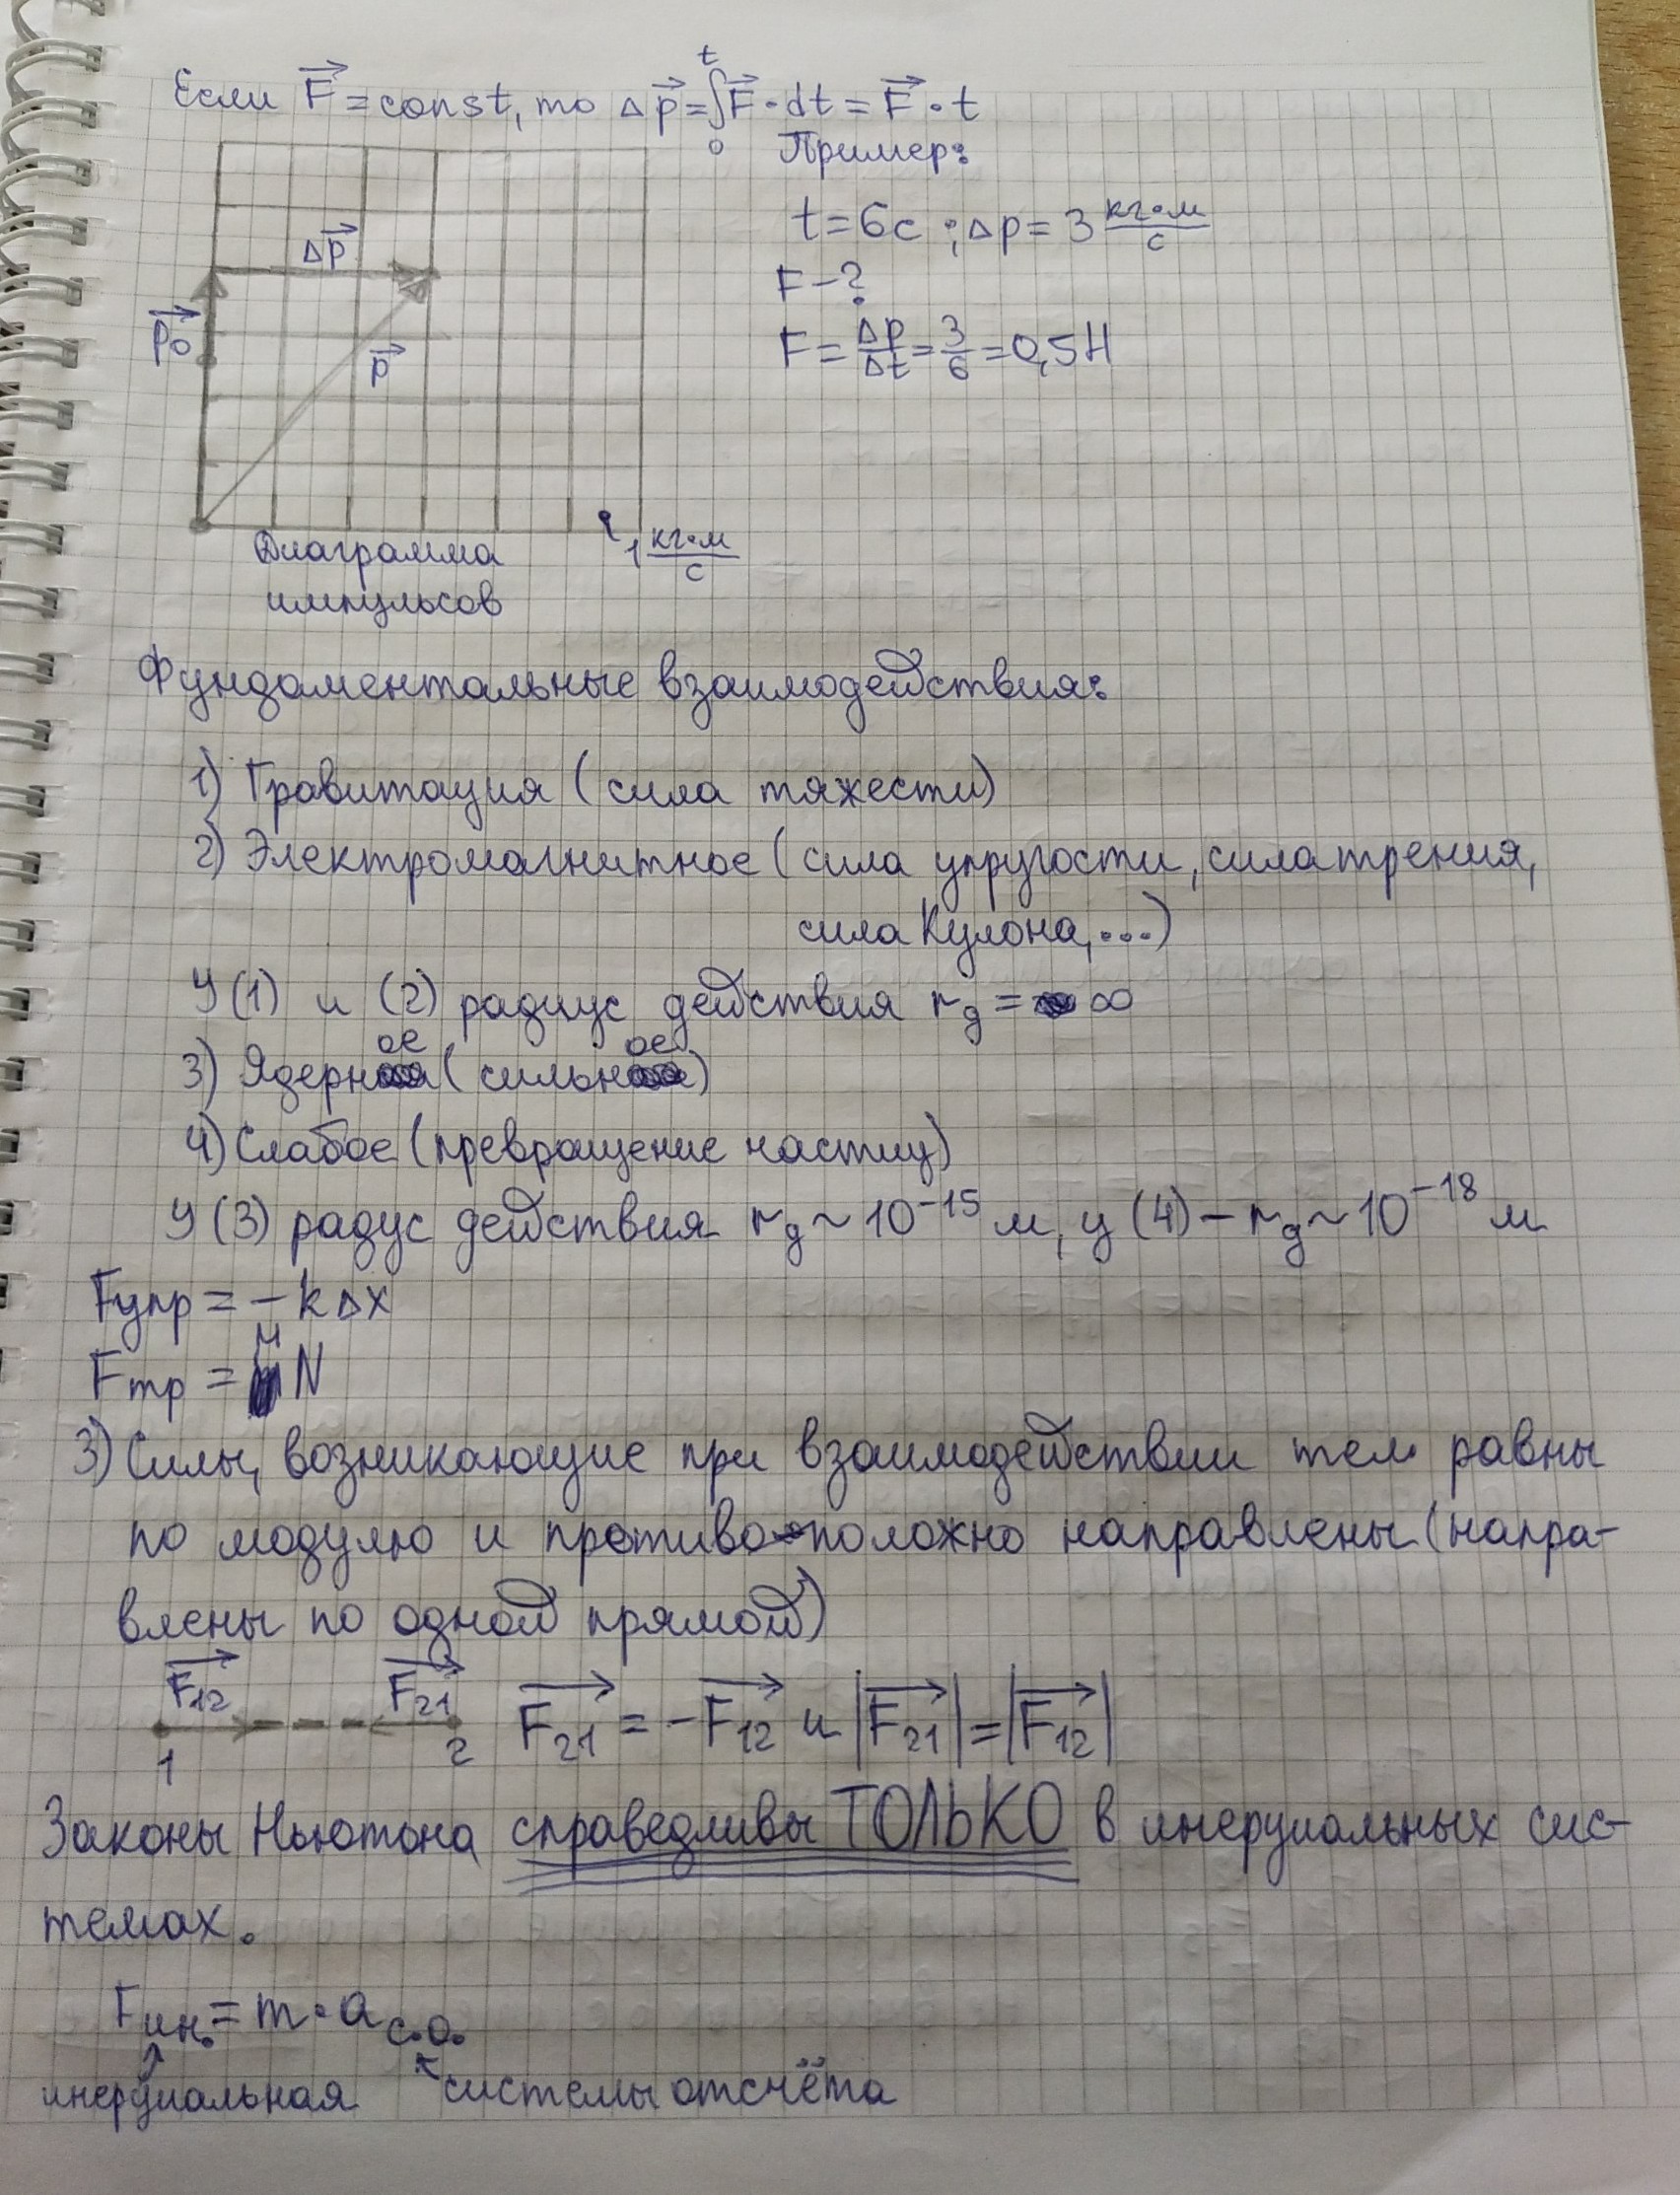 Если F⃗ = const, то Δp⃗ = ∫₀ᵗ F⃗ · dt = F⃗ · t
Пример:
t = 6с ; Δp = 3 кг·м/с
F – ?
F = Δp/Δt = 3/6 = 0,5Н
Δp⃗
p₀⃗
p⃗
1 кг·м/с
Диаграмма
импульсов
Фундаментальные взаимодействия:
1) Гравитация (сила тяжести)
2) Электромагнитное (сила упругости, сила трения,
сила Кулона, ...)
У (1) и (2) радиус действия r_д = ∞
3) Ядерное (сильное)
4) Слабое (превращение частиц)
У (3) радус действия r_д ~ 10⁻¹⁵ м, у (4) – r_д ~ 10⁻¹⁸ м
Fупр = – kΔx
Fтр = μN
3) Силы, возникающие при взаимодействии тел равны
по модулю и противоположно направлены (напра-
влены по одной прямой)
F₁₂⃗ F₂₁⃗ F₂₁⃗ = –F₁₂⃗ и |F₂₁⃗| = |F₁₂⃗|
1 2
Законы Ньютона справедливы ТОЛЬКО в инерциальных сис-
темах.
Fин. = m · a с.о.
инерциальная системы отсчёта